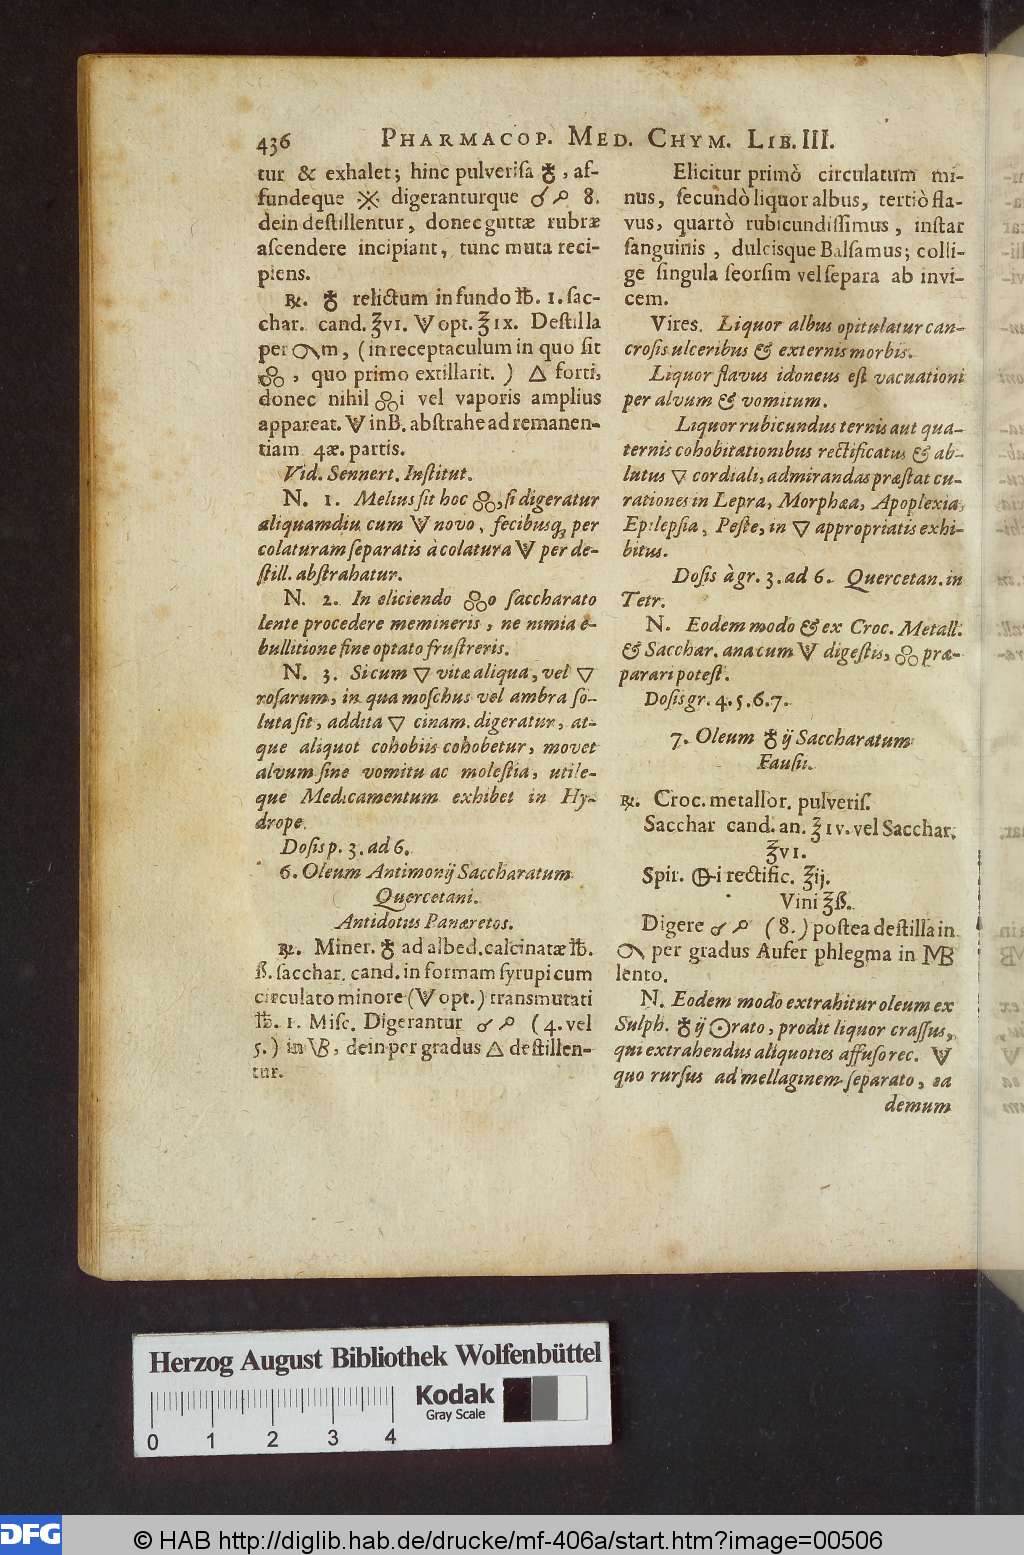 436 PHARMACOP. MED. CHYM. LIB. III.
tur & exhalet; hinc pulverisa ♁, af-
fundeque ※ digeranturque ☌ 8.
dein destillentur, donec guttæ rubræ
ascendere incipiant, tunc muta reci-
piens.
℞. ♁ relictum in fundo ℔. 1. sac-
char. cand. ℥vi. opt. ℥ix. Destilla
per m, (in receptaculum in quo sit
, quo primo extillarit.) △ forti,
donec nihil i vel vaporis amplius
appareat. in B. abstrahe ad remanen-
tiam 4æ. partis.
Vid. Sennert. Institut.
N. 1. Melius fit hoc , si digeratur
aliquamdiu cum novo, fecibusq; per
colaturam separatis à colatura per de-
still. abstrahatur.
N. 2. In eliciendo o saccharato
lente procedere memineris, ne nimia e-
bullitione fine optato frustreris.
N. 3. Si cum ▽ vitæ aliqua, vel ▽
rosarum, in qua moschus vel ambra so-
luta sit, addita ▽ cinam. digeratur, at-
que aliquot cohobiis cohobetur, movet
alvum sine vomitu ac molestia, utile-
que Medicamentum exhibet in Hy-
drope.
Dosis p. 3. ad 6.
6. Oleum Antimonij Saccharatum
Quercetani.
Antidotus Panæretos.
℞. Miner. ♁ ad albed. calcinatæ ℔.
ß. sacchar. cand. in formam syrupi cum
circulato minore ( opt.) transmutati
℔. 1. Misc. Digerantur ☌ (4. vel
5.) in VB, dein per gradus △ destillen-
tur.
Elicitur primò circulatum mi-
nus, secundò liquor albus, tertiò fla-
vus, quartò rubicundissimus, instar
sanguinis, dulcisque Balsamus; colli-
ge singula seorsim vel separa ab invi-
cem.
Vires. Liquor albus opitulatur can-
crosis ulceribus & externis morbis.
Liquor flavus idoneus est vacuationi
per alvum & vomitum.
Liquor rubicundus ternis aut qua-
ternis cohobitationibus rectificatus & ab-
lutus ▽ cordiali, admirandas præstat cu-
rationes in Lepra, Morphæa, Apoplexia,
Epilepsia, Peste, in ▽ appropriatis exhi-
bitus.
Dosis à gr. 3. ad 6. Quercetan. in
Tetr.
N. Eodem modo & ex Croc. Metall.
& Sacchar. ana cum digestis, præ-
parari potest.
Dosis gr. 4. 5. 6. 7.
7. Oleum ♁ ij Saccharatum
Fausii.
℞. Croc. metallor. pulveris.
Sacchar cand. an. ℥iv. vel Sacchar.
℥vi.
Spir. i rectific. ℥ij.
Vini ℥ß.
Digere ☌ (8.) postea destilla in
per gradus Aufer phlegma in MB
lento.
N. Eodem modo extrahitur oleum ex
Sulph. ♁ ij ☉rato, prodit liquor crassus,
qui extrahendus aliquoties affuso rec.
quo rursus ad mellaginem separato, ea
demum
Herzog August Bibliothek Wolfenbüttel
Kodak
Gray Scale
0 1 2 3 4
DFG
© HAB http://diglib.hab.de/drucke/mf-406a/start.htm?image=00506